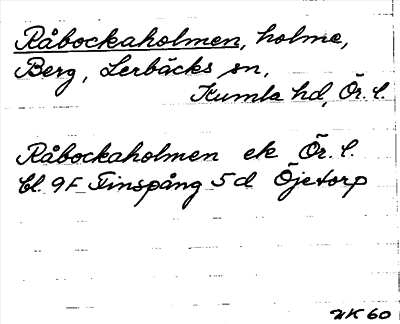 Råbockaholmen, holme,
Berg, Lerbäcks sn,
Kumla hd, Ör. l.
Råbockaholmen ek Ör. l.
bl. 9F Finspång 5d Öjetorp
NK 60